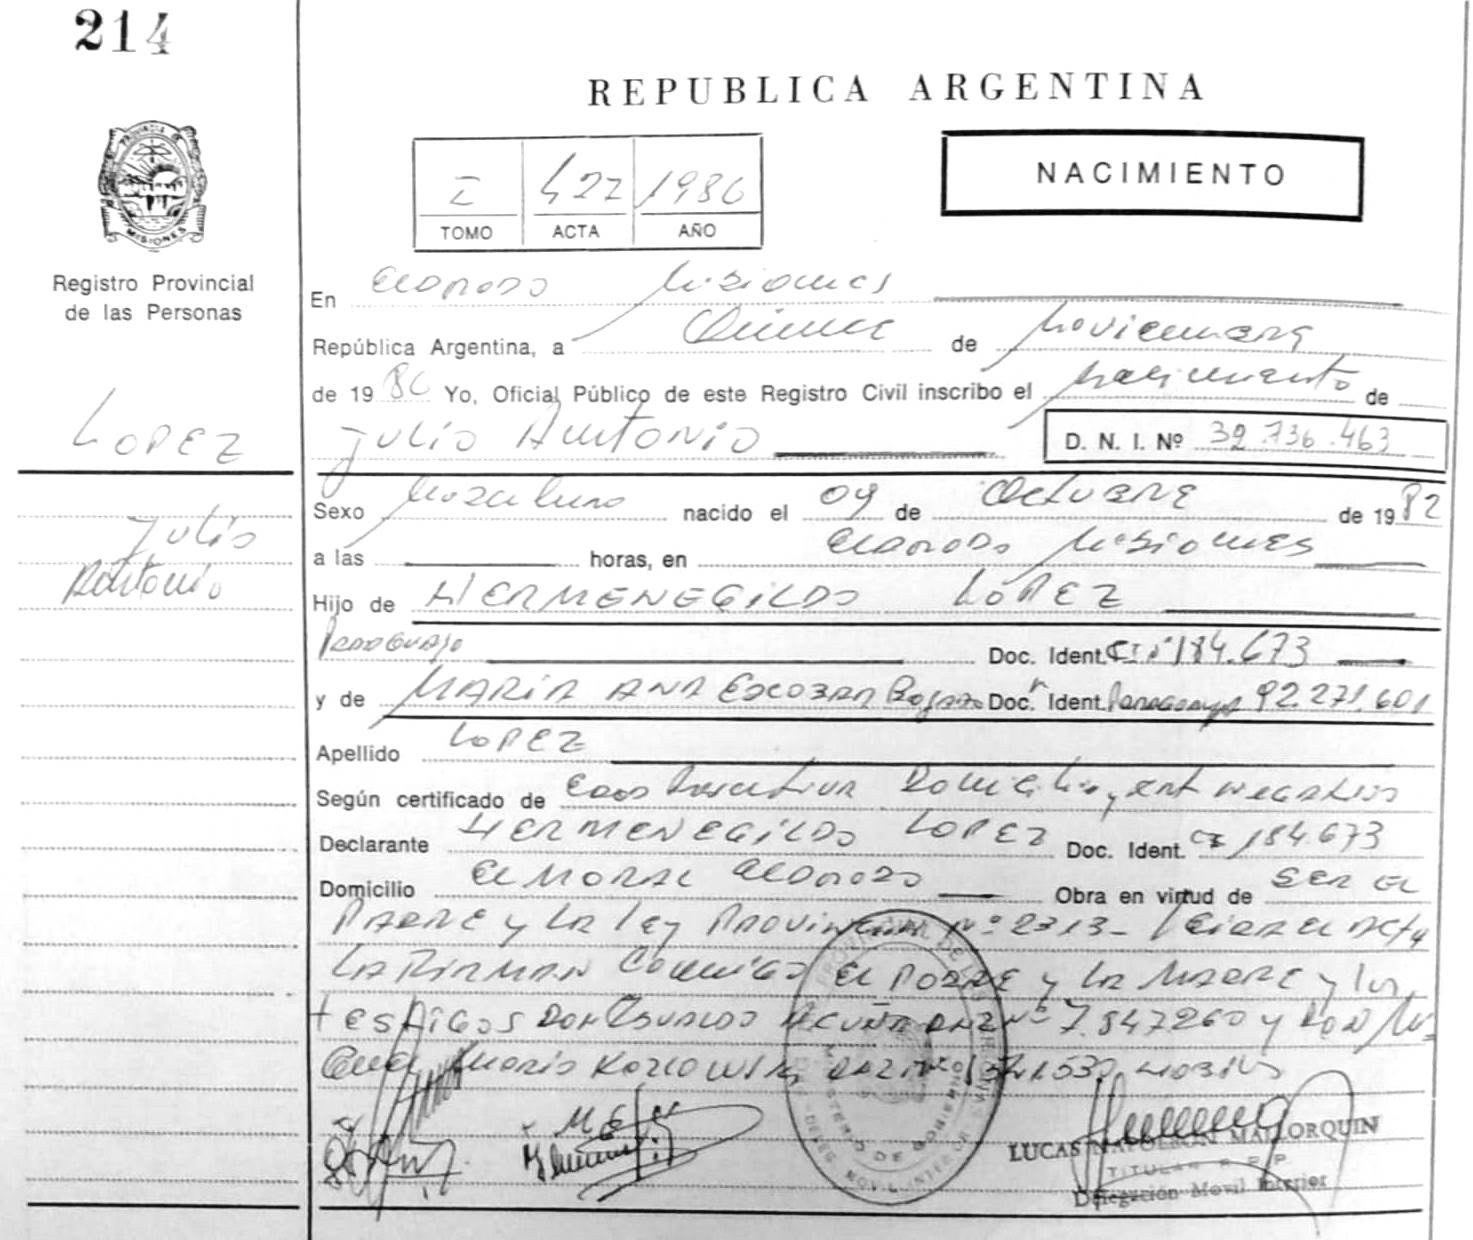 214
REPUBLICA ARGENTINA
NACIMIENTO
I 427 1986
TOMO ACTA AÑO
PROVINCIA DE
MISIONES
Registro Provincial
de las Personas
En Eldorado Misiones
República Argentina, a Quince de Noviembre
de 1986 Yo, Oficial Público de este Registro Civil inscribo el nacimiento de
LOPEZ
Julio Antonio
D. N. I. Nº 32.736.463
Sexo Masculino nacido el 09 de Octubre de 1982
Julio
Antonio
a las horas, en Eldorado Misiones
Hijo de HERMENEGILDO LÓPEZ
Paraguayo Doc. Ident. C.I. 184.673
y de MARIA ANA ESCOBAR Doc. Ident. Paraguaya 92.271.601
Apellido LOPEZ
Según certificado de
Declarante HERMENEGILDO LOPEZ Doc. Ident. CI 184.673
Domicilio Eldorado Obra en virtud de SER EL
PADRE y LA ley PROVINCIAL Nº 2313- Leida el Acta
LA FIRMAN Conmigo EL PADRE y LA MADRE y los
testigos DON OSVALDO ACUÑA DNI Nº 7.847260 y DON
Mario
LUCAS NAPOLEON MALLORQUIN
TITULAR R.P.P.
Delegación Movil Interior